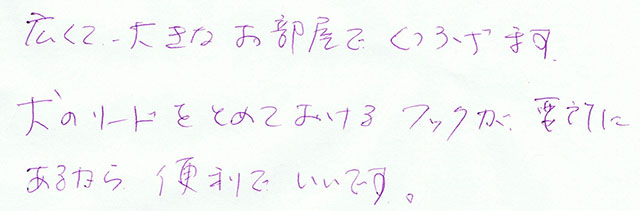 広くて、大きなお部屋でくつろげます
犬のリードをとめておけるフックが、要所に
あるから便利でいいです。